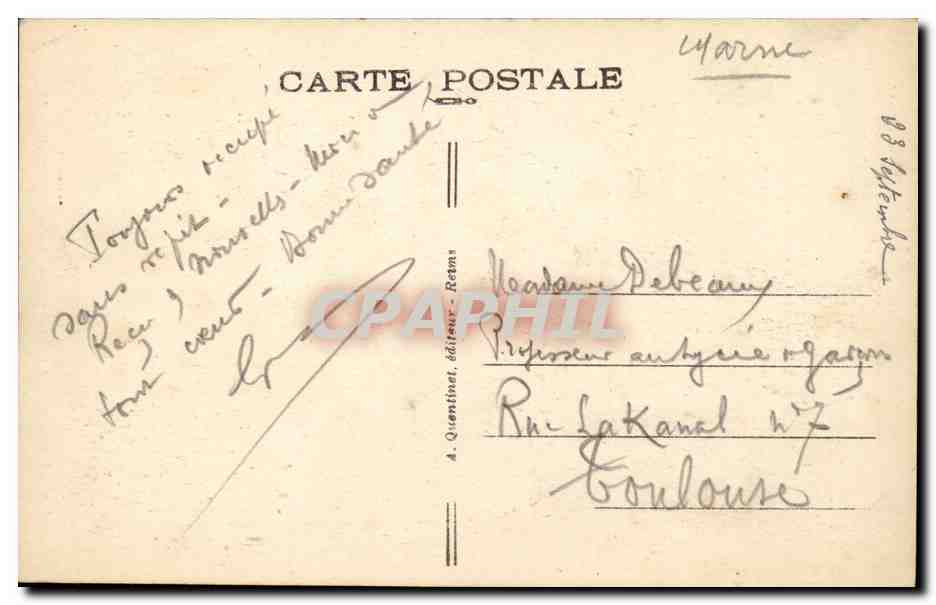 Marne
CARTE POSTALE
23 Septembre
Toujours occupé
sans répit -
Reçu 3 nouvelles - Merci
tout Bonne santé
A. Quentinet, éditeur - Reims
CPAPHIL
Madame Debeaux
Professeur au Lycée Garçons
Rue LaKanal n° 7
Toulouse